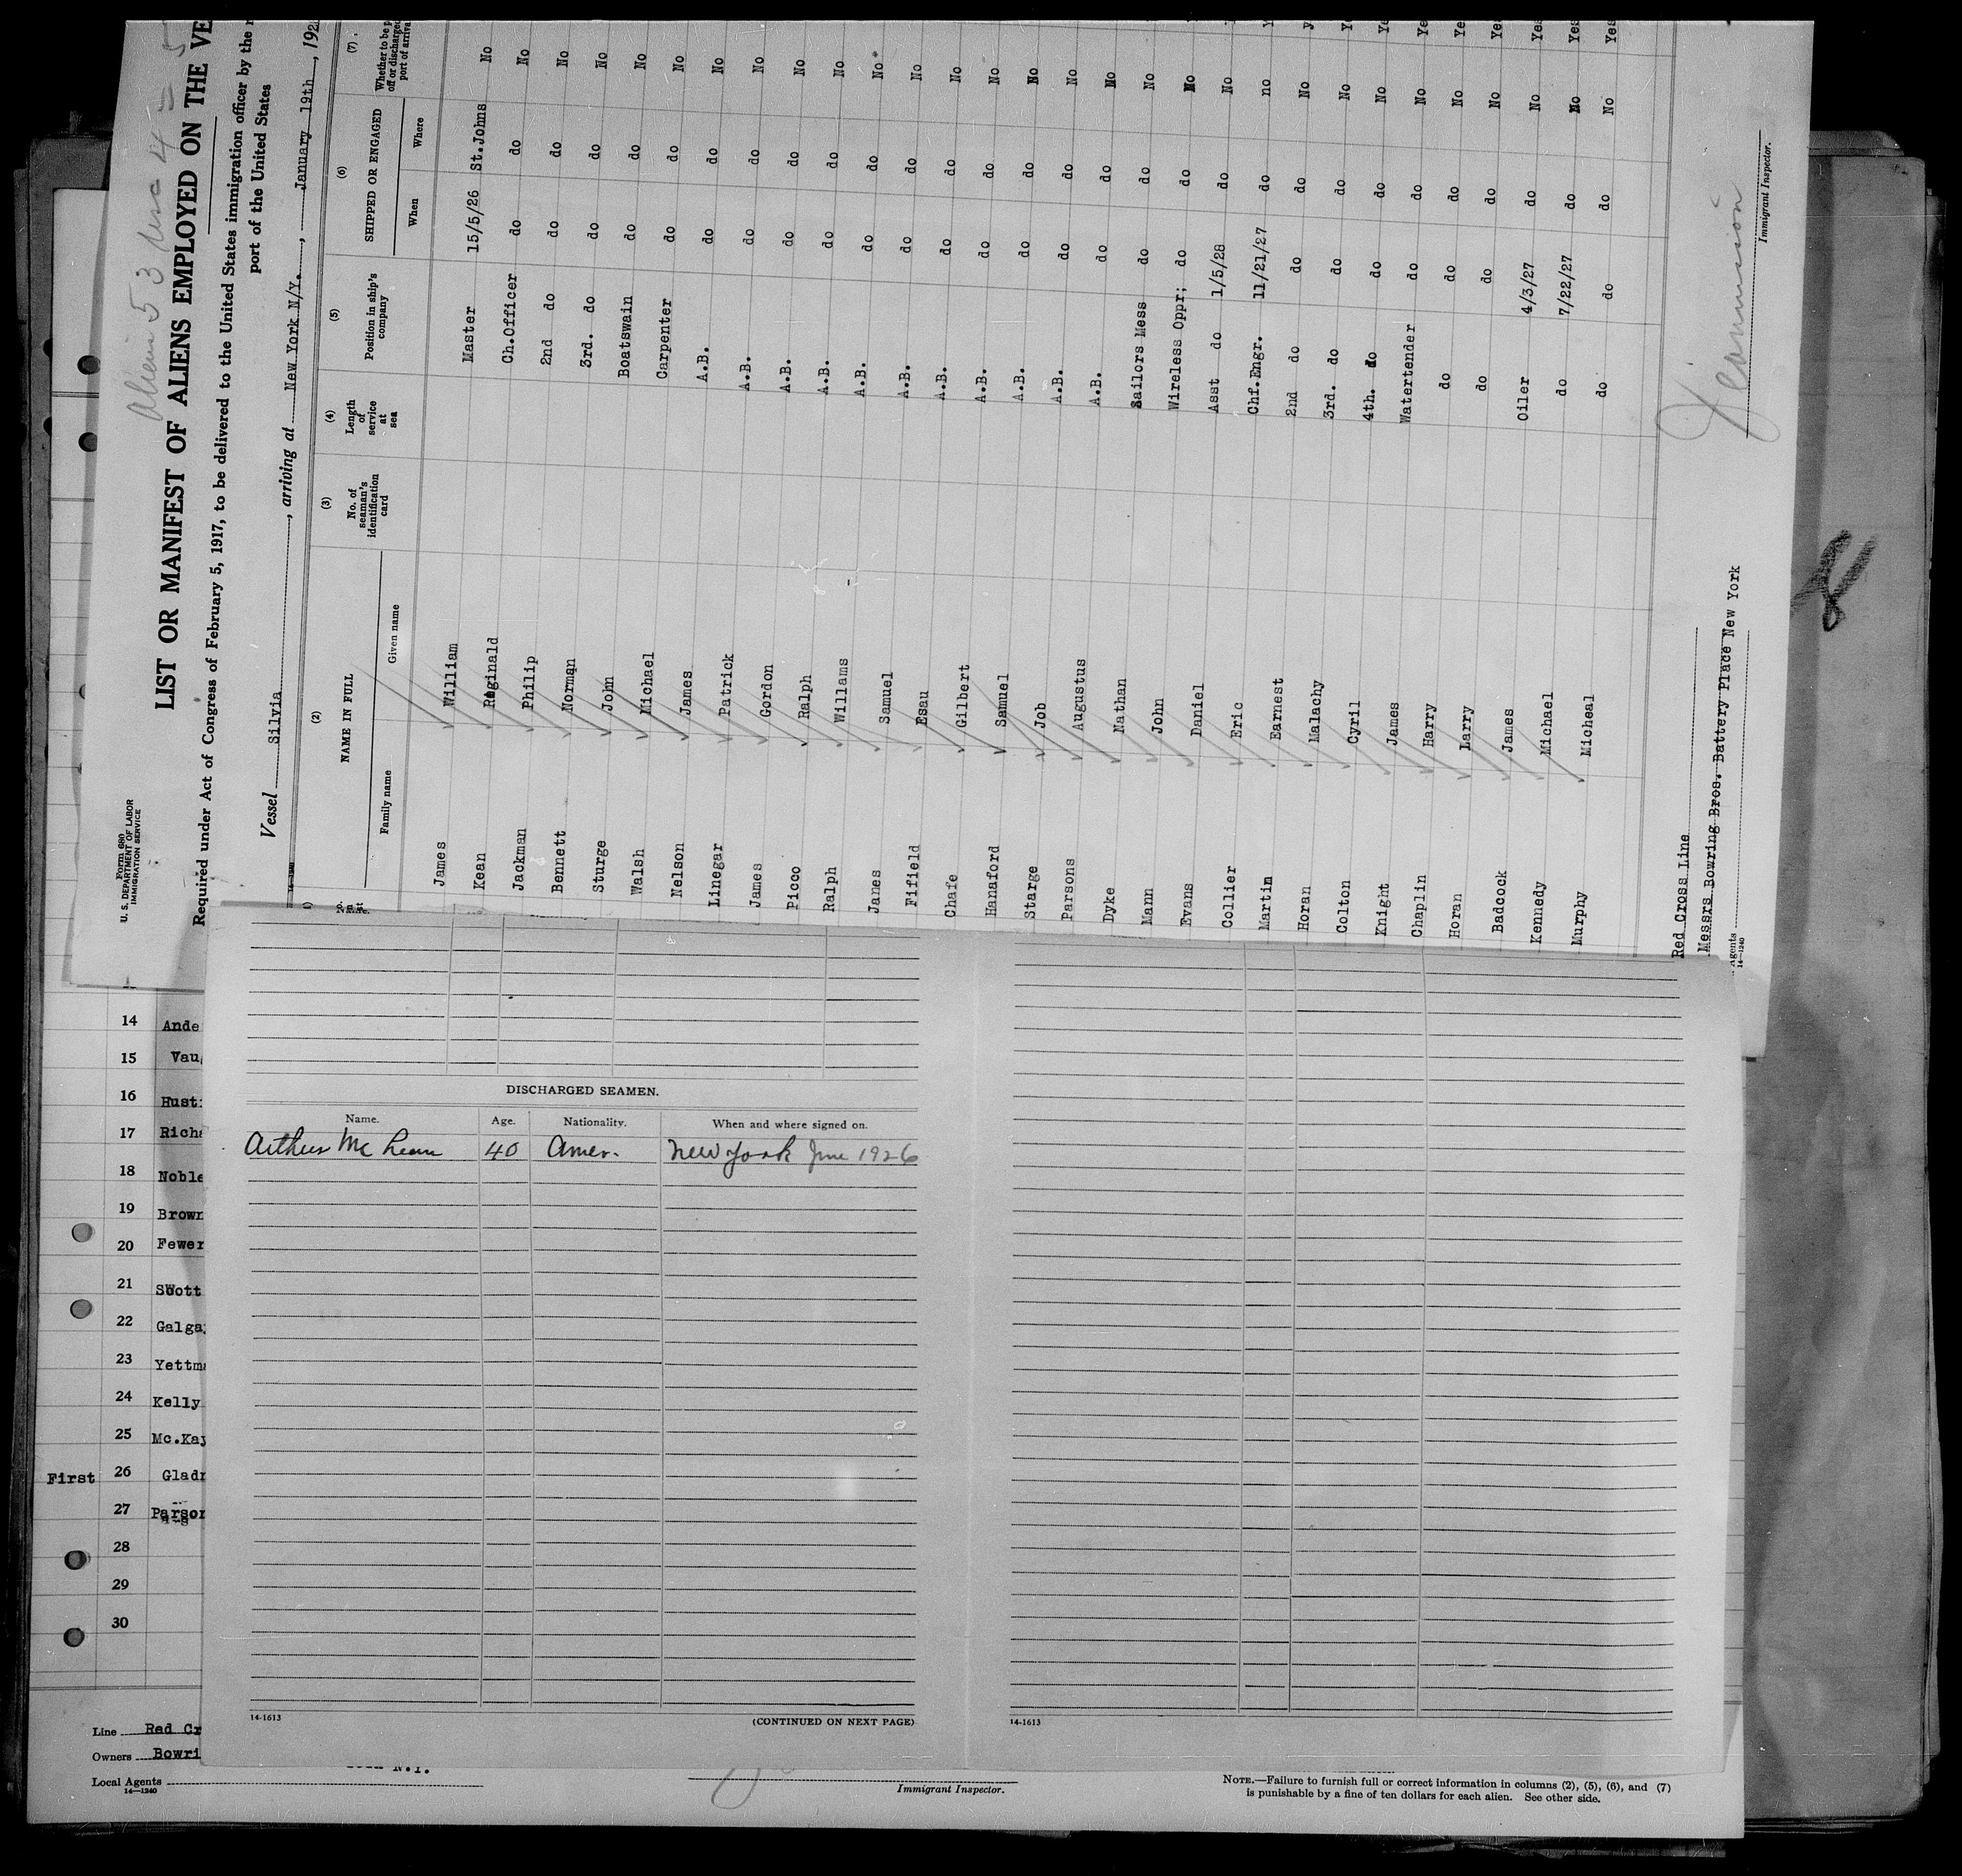 Aliens 53 Usc 4 = 5
Form 680
U. S. DEPARTMENT OF LABOR
IMMIGRATION SERVICE
LIST OR MANIFEST OF ALIENS EMPLOYED ON THE VE
Required under Act of Congress of February 5, 1917, to be delivered to the United States immigration officer by the r
port of the United States
Vessel Silvia, arriving at New York N/Y., January 19th, 192
14-1240
(1) (2) (3) (4) (5) (6) (7)
NAME IN FULL No. of seaman's identification card Length of service at sea Position in ship's company SHIPPED OR ENGAGED Whether to be p off or discharged port of arriv
Family name Given name When Where
James William Master 15/5/26 St.Johns No
Kean Reginald Ch.Officer do do No
Jackman Philip 2nd do do do No
Bennett Norman 3rd. do do do No
Sturge John Boatswain do do No
Walsh Michael Carpenter do do No
Nelson James A.B. do do No
Linegar Patrick A.B. do do No
James Gordon A.B. do do No
Picco Ralph A.B. do do No
Ralph Willams A.B. do do No
Janes Samuel A.B. do do No
Fifield Esau A.B. do do No
Chafe Gilbert A.B. do do No
Hanaford Samuel A.B. do do No
Starge Job A.B. do do No
Parsons Augustus A.B. do do No
Dyke Nathan Sailors Mess do do No
Mann John Wireless Oppr; do do No
Evans Daniel Asst do 1/5/28 do No
Collier Eric Chf.Engr. 11/21/27 do no Y
Martin Earnest 2nd do do do No y
Horan Malachy 3rd. do do do No Ye
Colton Cyril 4th. do do do No Ye
Knight James Watertender do do No Ye
Chaplin Harry do do do No Ye
Horan Larry do do do No Yes
Badcock James Oiler 4/3/27 do No Yes
Kennedy Michael do 7/22/27 do No Yes
Murphy Micheal do do do No Yes
Red Cross Line
Messrs Bowring Bros. Battery Place New York
Agents
14-1240
Immigrant Inspector.
8
14 Ande
15 Vau
16 Hust
17 Richa
18 Noble
19 Brown
20 Fewer
21 Scott
22 Galga
23 Yettma
24 Kelly
25 Mc.Kay
First 26 Gladn
27 Parson
28
29
30
DISCHARGED SEAMEN.
Name. Age. Nationality. When and where signed on.
Arthur Mc Lean 40 Amer. New York June 1926
14-1613
(CONTINUED ON NEXT PAGE)
14-1613
Line Red Cr
Owners Bowri
N.Y.
Local Agents
14-1240
Immigrant Inspector.
NOTE.—Failure to furnish full or correct information in columns (2), (5), (6), and (7)
is punishable by a fine of ten dollars for each alien. See other side.